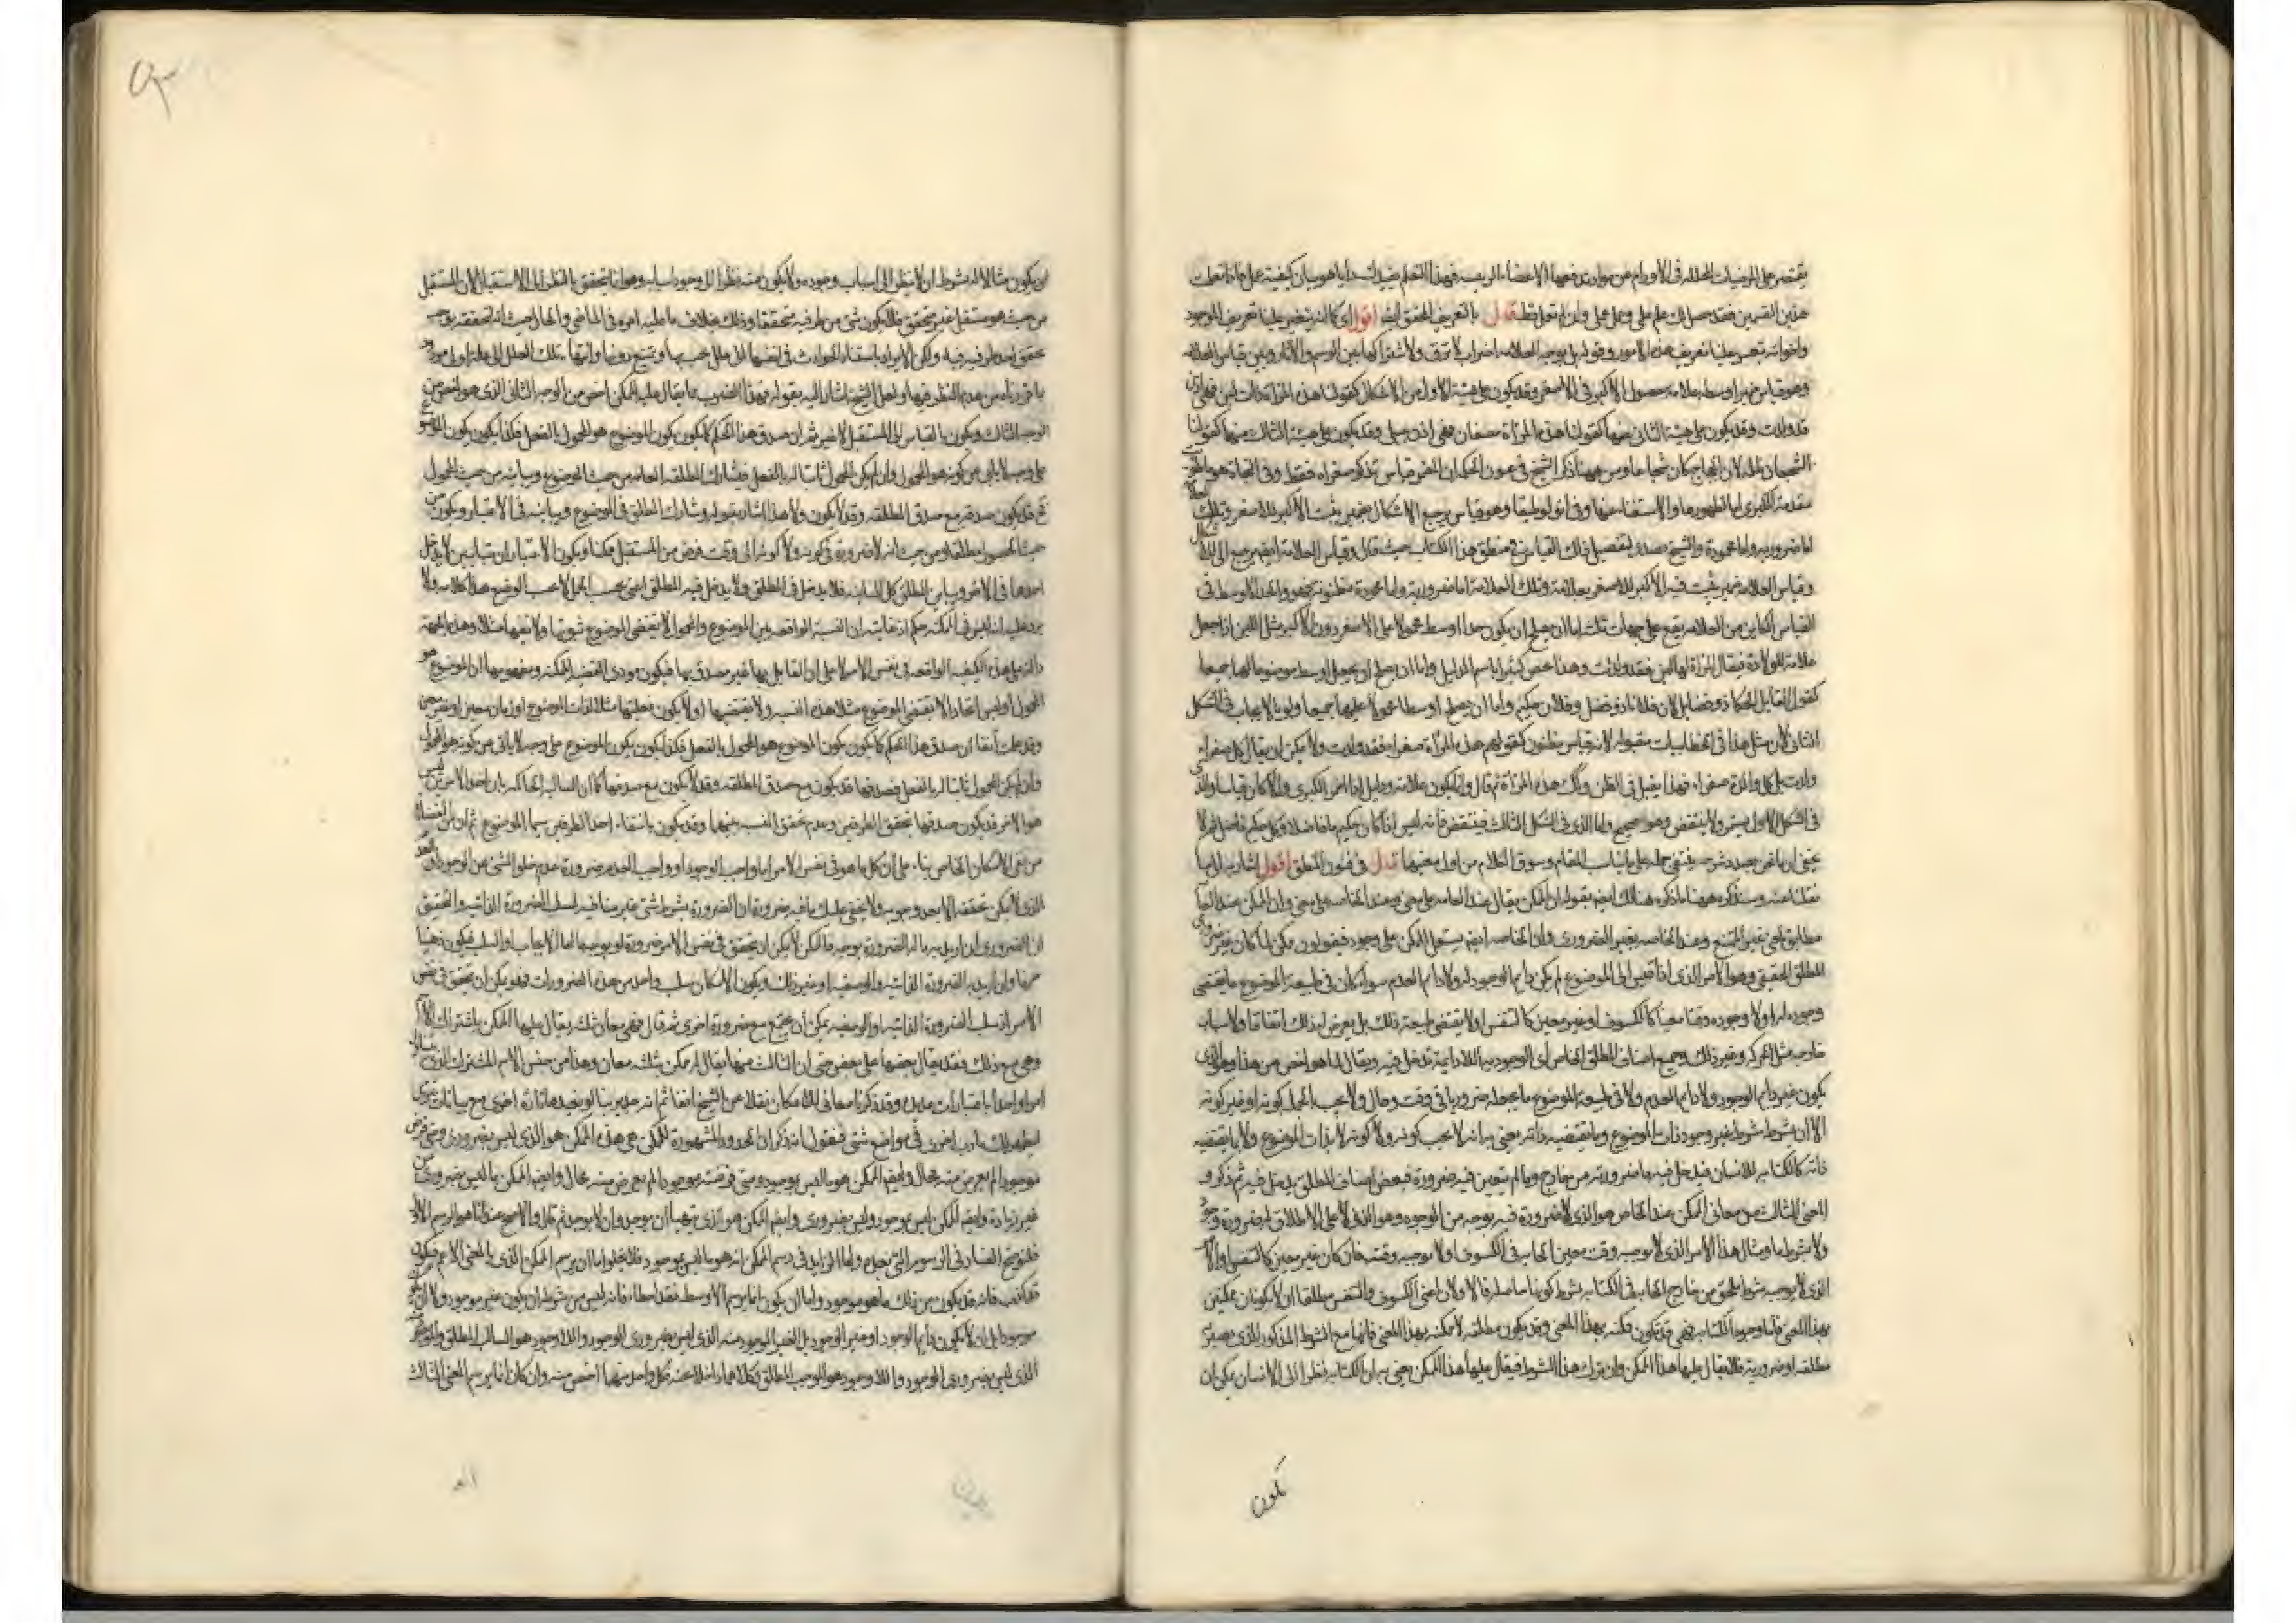 يقتصر على المرخيات المحللة في الأورام عن مواد تدفعها الاعضاء الرئيسة فهذا التعلم يفيد لتسدد اياما هو بيان كيفية عمل فاذا تعلمت
هذين القسمين فقد حصل لك علم علمي وعلم عملي وان لم تعمل قط قال بالتعريف المحقق ايضا اقول اي كما انه يتعسر علينا تعريف الموجود
واخواته تعسر علينا تعريف هذه الامور وقوله بل بوجه العلامة اضراب لا ترق ولاشتراكها بين الرسم والاثار وبين قياس العلامة
وهو قياس ضمير اوسطه علامة حصول الاكبر في الاصغر وقد يكون على هيئة الاول من الاشكال كقولنا هذه المراة ذات لبن فهي اذن
قد ولدت وقد يكون على هيئة الثاني منها كقولنا هذه المراة مصفارة فهي اذن حبلى وقد يكون على هيئة الثالث منها كقولنا
الشجعان ظلمة لان الحجاج كان شجاعا ومن ههنا ذكر الشيخ في عيون الحكمة ان الضمير قياس تذكر صغراه فقط وفي النجاة هو
مقدمته الكبرى اما لظهورها والاستغناء عنها وفي انولوطيقا وهو قياس يرجع الاشكال ضمير يثبت الاكبر للاصغر وتلك
اما ضرورية واما محمودة والشيخ بصدد تفصيل ذلك القياس في منطق هذا الكتاب حيث قال وقياس العلامة ايضا يرجع الى
وقياس العلامة ضمير يثبت فيه الاكبر للاصغر بعلامة وتلك العلامة اما ضرورية واما محمودة مظنونة واخذ الاوسط في
القياس الكاين من العلامة يقع على جهات ثلث اما ان يصلح ان يكون حدا اوسط محمولا على الاصغر دون الاكبر مثل اللبن اذا جعل
علامة للولادة فيقال المراة لها لبن فقد ولدت وهذا خص كثيرا باسم الدليل واما ان يصلح ان يجعل اوسط موضوعا لهما جميعا
كقول القايل الحكماء ذو فضايل لان فلانا ذو فضل وفلان حكيم واما ان يصلح اوسط محمولا عليهما جميعا ولو بالايجاب في الشكل
الثاني لان مثل هذا في الخطابيات مقبولة لانه قياس مظنون كقولهم هذه المراة صفراء فقد ولدت ولا يمكن ان يقال كل صفراء
ولدت بل كل والدة صفراء فهذا يقبل في الظن ويك هذه المراة ثم قال وانما يكون علامة ودليل اذا اضمر الكبرى والا كان قياسا
في الشكل الاول يستمر ولا ينتقض وهو صحيح واما الذي في الشكل الثالث فينتقض فانه ليس اذا كان حكيم ما فاضلا وكل حكيم فاضل
يخفى ان ما نحن بصدد شرحه ينبغي حمله على ما يناسب المقام وسوق الكلام من اول معنييها قال في فنون المنطق اقول اشارة الى ما
نقلنا عنه وسنذكره ههنا ما ذكره هنالك ايضا بقوله ان الممكن يقال عند العامة على معنى وعند الخاصة على معنى وان الممكن عند العامة
مطابق لمعنى غير الممتنع وعند الخاصة بغير الضروري وان الخاصة ايضا يستعمل الممكن على وجود فيقولون ممكن لما كان غير ضروري
المطلق الحقيقي وهو الامر الذي اذا قيس الى الموضوع لم يكن دايم الوجود له ولا دايم العدم سواء كان في طبيعة الموضوع ما يقتضي
وجوده له او لا وجوده وقتا معينا كالكسوف او غير معين كالتنفس او لا يقتضي طبيعته ذلك بل يعرض له ذلك اتفاقا ولاسباب
خارجية مثل الحركة وغير ذلك وجميع اصناف المطلق الخاص اي الوجودية اللادايمة تدخل فيه ويقال لما هو اخص من هذا وهو الذي
يكون غير دايم الوجود ولا دايم العدم ولا في طبيعة الموضوع ما يجعله ضروريا في وقت وحال ولا يجب الحمل كونه او غير كونه
الا ان يشترط شرط غير وجود ذات الموضوع وما يقتضيه ذاته يعني به انه لا يجب كونه ولا كونه لا بذات الموضوع ولا بما يقتضيه
ذاته كالكتابة للانسان فيدخل فيه ما ضرورته من خارج وما لم يتعين فيه ضرورة فبعض اصناف المطلق يدخل فيه ثم ذكر
المعنى الثالث من معاني الممكن عند الخاص هو الذي لا ضرورة فيه بوجه من الوجوه وهو الذي لا على الاطلاق له ضرورة
ولا بشرط ما ومثال هذا الامر الذي لا يوجبه وقت معين ايجابه في الكسوف ولا يوجبه وقت خان كان غير معين كالتنفس
الذي لا يوجبه شرط يلحق من خارج ايجابه في الكتابة بشرط كونها ما صلة فالاولان اعني الكسوف والتنفس مطلقا اولا يكونان ممكنين
بهذا المعنى فاما وجود الكتابة فهي قد تكون ممكنة بهذا المعنى وقد يكون مطلقة لا ممكنة بهذا المعنى فانها مع الشرط المذكور الذي يصير
مطلقة او ضرورية فلا يقال عليها هذا الممكن وان ترك هذا الشرط فيقال عليها هذا الممكن يعني به ان الكتابة نظرا الى الانسان يمكن ان
تكون
ان يكون مثالا له بشرط ان لا ينظر الى اسباب وجوده ولا يكون منه نظرا الى وجود اسبابه وهو انما يتحقق بالنظر الى الاستقبال لان المستقبل
من حيث هو مستقبل غير متحقق فلا يكون شيء من طرفيه متحققا وذلك بخلاف ما عليه امره في الماضي والحال حيث انه تحققه يوجب
تحقق احد طرفيه فيه ولكن الايراد باستناد الحوادث في انفسها الى علل يجب بها ويمتنع دونها وانتهاء تلك العلل الى علة اولى
ما قررناه من عدم النظر فيها ولعل الشيخ اشار اليه بقوله فهذا الضرب مما يقال عليه الممكن اخص من الوجه الثاني الذي هو اخص من
الوجه الثالث ويكون بالقياس الى المستقبل لا غير ثم ان صدق هذا الحكم كما يكون بكون الموضوع هو المحمول بالفعل فكذا يكون بكون الموضوع
على وجه لا يابى عن كونه هو المحمول وان لم يكن المحمول ثابتا له بالفعل فيشارك المطلقة العامة من حيث الموضوع ويباينه من حيث المحمول
ثم قد يكون صدقه مع صدق المطلقة وقد لا يكون ولا هذا اشار بقوله ويشارك المطلق في الموضوع ويباينه في الاعتبار ويكون من
حيث الحصول مطلقا ومن حيث انه لا ضرورة في كونه ولا كونه الى وقت فرض من المستقبل ممكنا ويكون الاعتباران متباينين لا يدخل
احدهما في الاخر ويباين المطلق كل المباينة فلا يدخل في المطلق ولا يدخل فيه المطلق اعني بحسب الحمل لا بحسب الوضع هذا كلامه ولا
يرد عليه انه ليس في الممكنة حكم اذ غايته ان النسبة الواقعة بين الموضوع والمحمول لا يقتضي الموضوع ثبوتها ولا نفيها مثلا وهذه الجهة
دالة على هذه الكيفية الواقعة في نفس الامر لا على ان القايل بها غير مصدق بها فيكون مودى القضية الممكنة ومفهومها ان الموضوع هو
المحمول او ليس اتحادا لا يقتضي الموضوع مثلا هذه النسبة ولا نقيضها او لا يكون نعليتها مثلا لذات الموضوع او زمان معين او غير معين
وقد علمت آنفا ان صدق هذا الحكم كما يكون بكون الموضوع هو المحمول بالفعل فكذا يكون بكون الموضوع على وجه لا يابى عن كونه هو المحمول
وان لم يكن المحمول ثابتا له بالفعل فصدقها قد يكون مع صدق المطلقة وقد لا يكون مع صدقها كما ان السالبة الحاكمة بان احد الامرين ليس
هو الاخر قد يكون صدقها بتحقق الطرفين وعدم تحقق النسبة بينهما وقد يكون بانتفاء احد الطرفين سيما الموضوع ثم ان من الفضلاء
من نفى الامكان الخاص بناء على ان كل ما هو في نفس الامر اما واجب الوجود او واجب العدم ضرورة عدم خلو الشيء عن الوجود او العدم
الذي لا يمكن تحققه الا بعد وجوبه ولا يخفى عليك ما فيه ضرورة ان الضرورة بشرط شيء غير منافية لسلب الضرورة الذاتية والتحقيق
ان الضروري ان اريد به ماله الضرورة بوجه فالممكن لا يمكن ان يتحقق في نفس الامر ضرورة لو بوجبها اما الايجاب او السلب فيكون ذهنيا
صرفا وان اريد به الضرورة الذاتية والوصفية او غير ذلك ويكون الامكان سلب واحد من هذه الضرورات فهو يمكن ان يتحقق في نفس
الامر اذ سلب الضرورة الذاتية والوصفية يمكن ان يجتمع مع ضرورة اخرى ثم قال فهي معان ثلثة يقال عليها الممكن باشتراك الاسم
وهي مع ذلك فقد يقال بعضها على بعض حتى ان الثالث منها يقال له ممكن بثلثة معان وهذا من جنس الاسم المشترك الذي يتناول
امرا واحدا باعتبارات عدة وقد ذكرنا معاني الامكان نقلا عن الشيخ آنفا ثم انه جدير بنا لو نعيدها تارة اخرى مع بيانات
ليظهر لك مارب اخرى في مواضع شتى فنقول انه ذكر ان الحدود المشهورة للممكن هي هذه الممكن هو الذي ليس بضروري ومتى فرض
موجودا لم يعرض منه محال وايضا الممكن هو ما ليس بموجود ومتى فرضته موجودا لم يعرض منه محال وايضا الممكن ما ليس بضروري من
غير زيادة وايضا الممكن ليس بموجود وليس بضروري وايضا الممكن هو الذي يتهيأ ان يوجد وان لا يوجد ثم قال والاصح عندنا هو الرسم الاول
فلنوضح الفساد في الرسوم التي بعده واما الزايد في رسم الممكن انه هو ما ليس بموجود فلا يخلو اما ان يرسم الممكن الذي بالمعنى الاعم فيكون
قد كذب فانه قد يكون من ذلك ما هو موجود واما ان يكون انما يرسم الاوسط فقد اخطأ فانه ليس من شرطه ان يكون غير موجود ولا ان
موجودا بل ان لا يكون دايم الوجود او غير الوجود بل الغير الموجود منه الذي ليس بضروري الوجود واللاوجود هو السالب المطلق والموجود
الذي ليس بضروري الوجود واللاوجود هو الموجب المطلق وكلاهما داخلا عنه وكل واحد منهما اخص منه وان كان انما يرسم المعنى الثالث